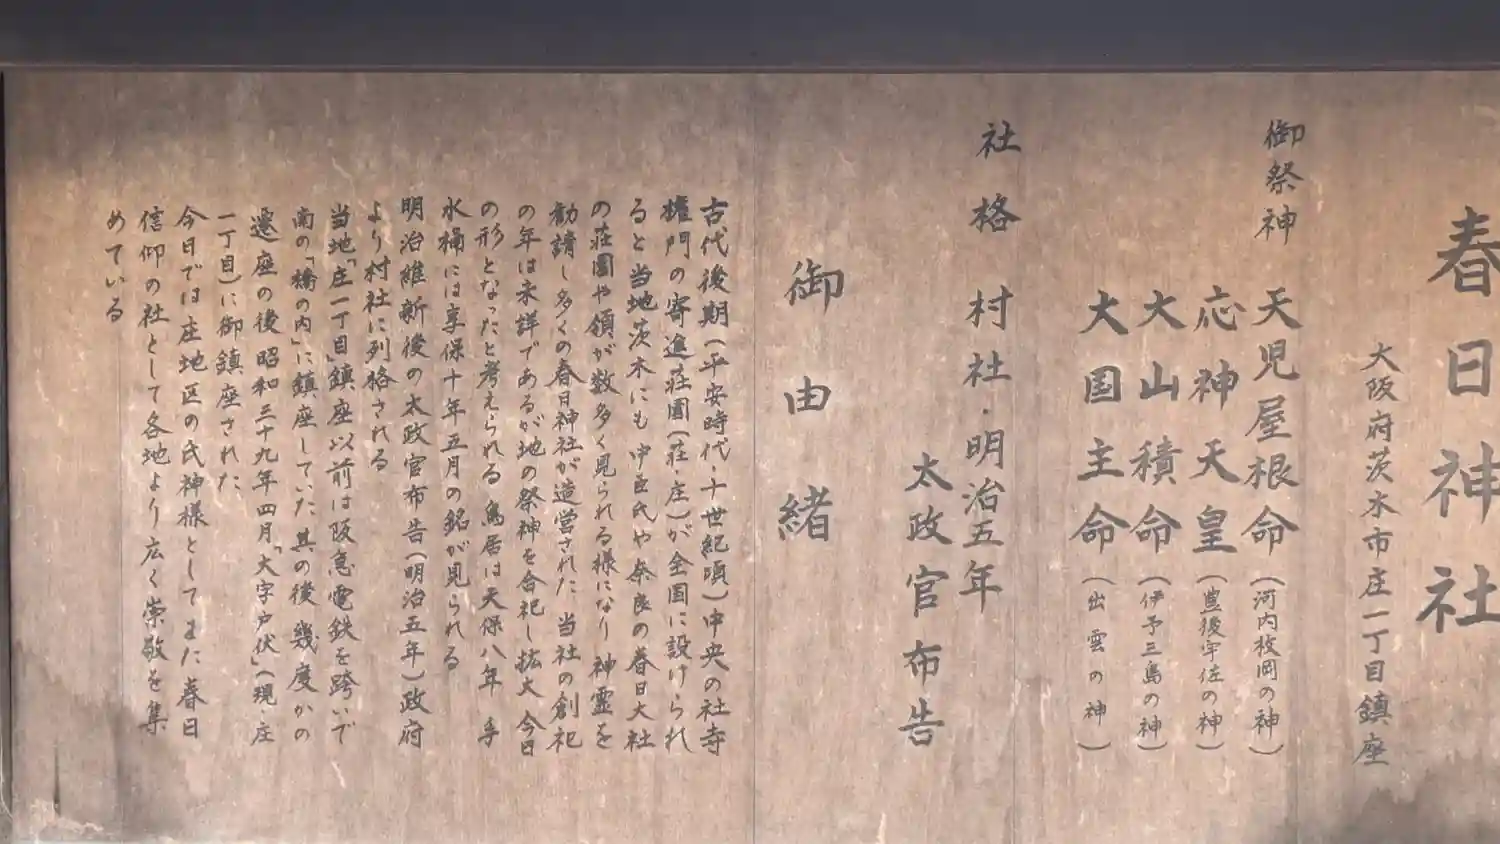 春日神社
大阪府茨木市庄一丁目鎮座
御祭神 天児屋根命(河内枚岡の神)
応神天皇(豊後宇佐の神)
大山積命(伊予三島の神)
大国主命(出雲の神)
社格 村社・明治五年
太政官布告
御由緒
古代後期(平安時代・十世紀頃)中央の社寺
権門の寄進荘園(荘・庄)が全国に設けられ
ると当地茨木にも中臣氏や奈良の春日大社
の荘園や領が数多く見られる様になり神霊を
勧請し多くの春日神社が造営された 当社の創祀
の年は未詳であるが地の祭神を合祀し拡大 今日
の形となったと考えられる 鳥居は天保八年 手
水桶には享保十年五月の銘が見られる
明治維新後の太政官布告(明治五年)政府
より村社に列格される
当地「庄一丁目」鎮座以前は阪急電鉄を跨いで
南の「橋の内」に鎮座していた 其の後 幾度かの
遷座の後 昭和三十九年四月「大字戸伏」(現・庄
一丁目)に御鎮座された
今日では庄地区の氏神様としてまた春日
信仰の社として各地より広く崇敬を集
めている